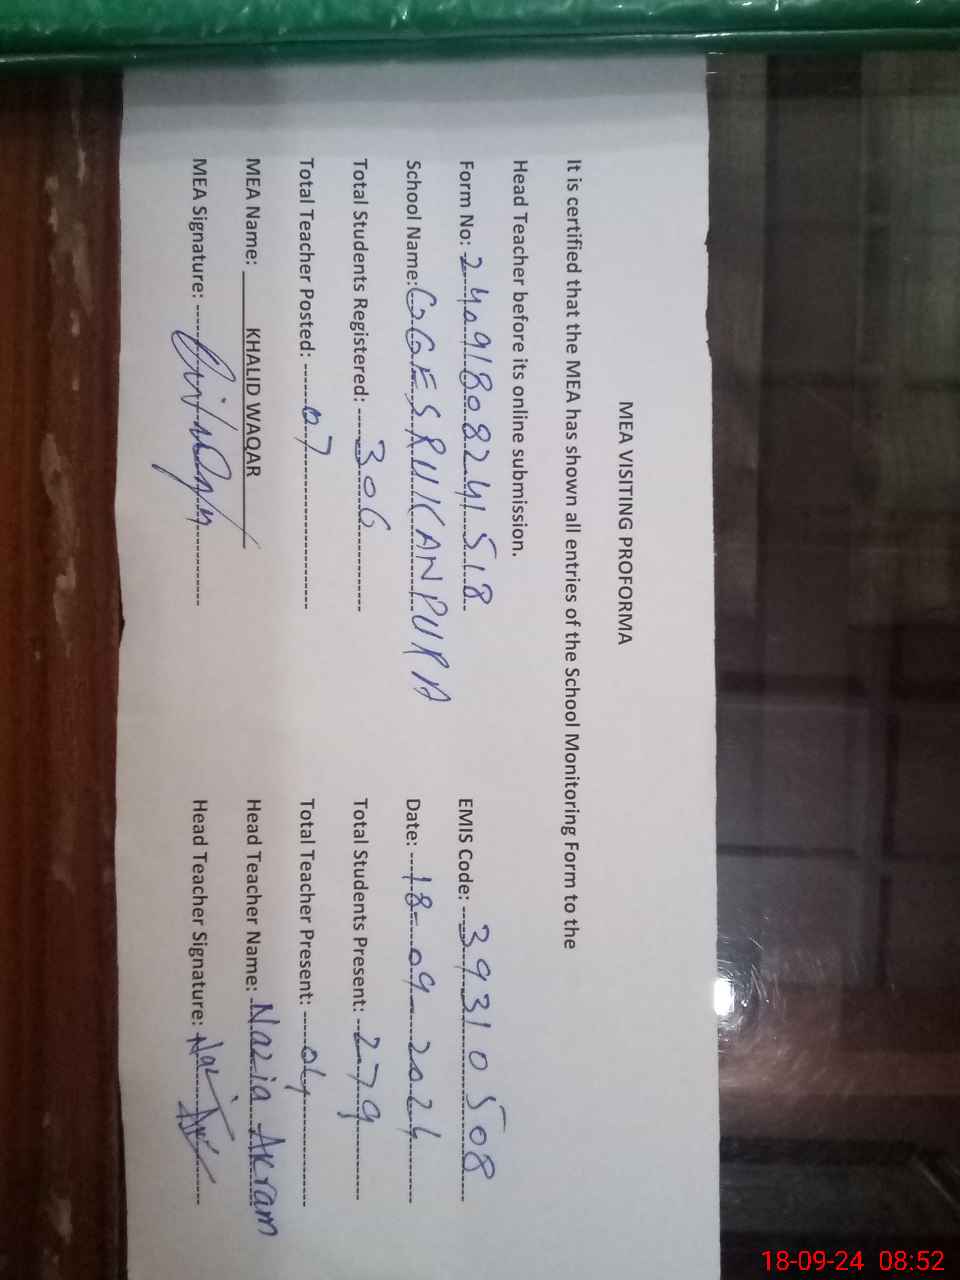 MEA VISITING PROFORMA
It is certified that the MEA has shown all entries of the School Monitoring Form to the
Head Teacher before its online submission.
Form No: 24091808241518 EMIS Code: 39310508
School Name: GGES RUKANPURA Date: 18-09-2024
Total Students Registered: 306 Total Students Present: 279
Total Teacher Posted: 07 Total Teacher Present: 04
MEA Name: KHALID WAQAR Head Teacher Name: Nazia Akram
MEA Signature: Head Teacher Signature:
18-09-24 08:52